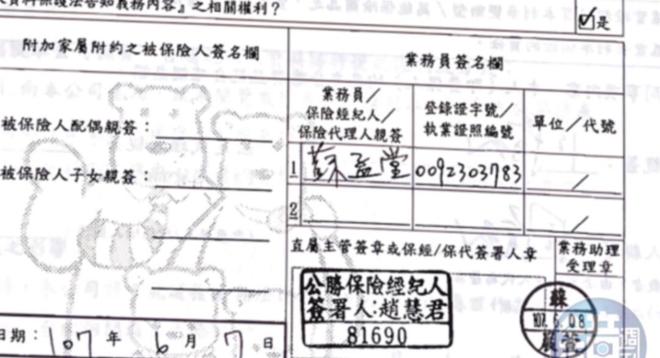 資料保護法告知義務內容』之相關權利?
是
附加家屬附約之被保險人簽名欄
業務員簽名欄
業務員/
保險經紀人/
保險代理人親簽
登錄證字號/
執業證照編號
單位/代號
被保險人配偶親簽:
1 蘇 堂 0092303783 /
被保險人子女親簽:
2 /
直屬主管簽章或保經/保代簽署人章
業務助理
受理章
公勝保險經紀人
簽署人:趙慧君
81690
蘇
107.6.08
日期:107年6月7日